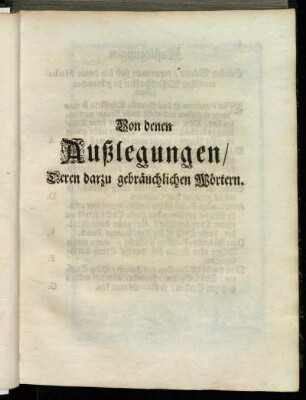 Von denen
Außlegungen/
Deren darzu gebräuchlichen Wörtern.